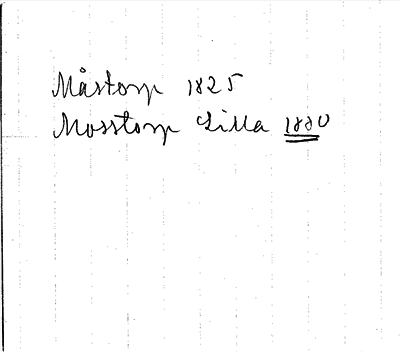 Måstorp 1825
Mosstorp Lilla 1880